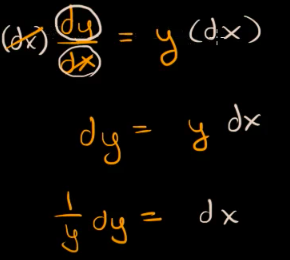 (dx) dy/dx = y (dx)
dy = y dx
1/y dy = dx